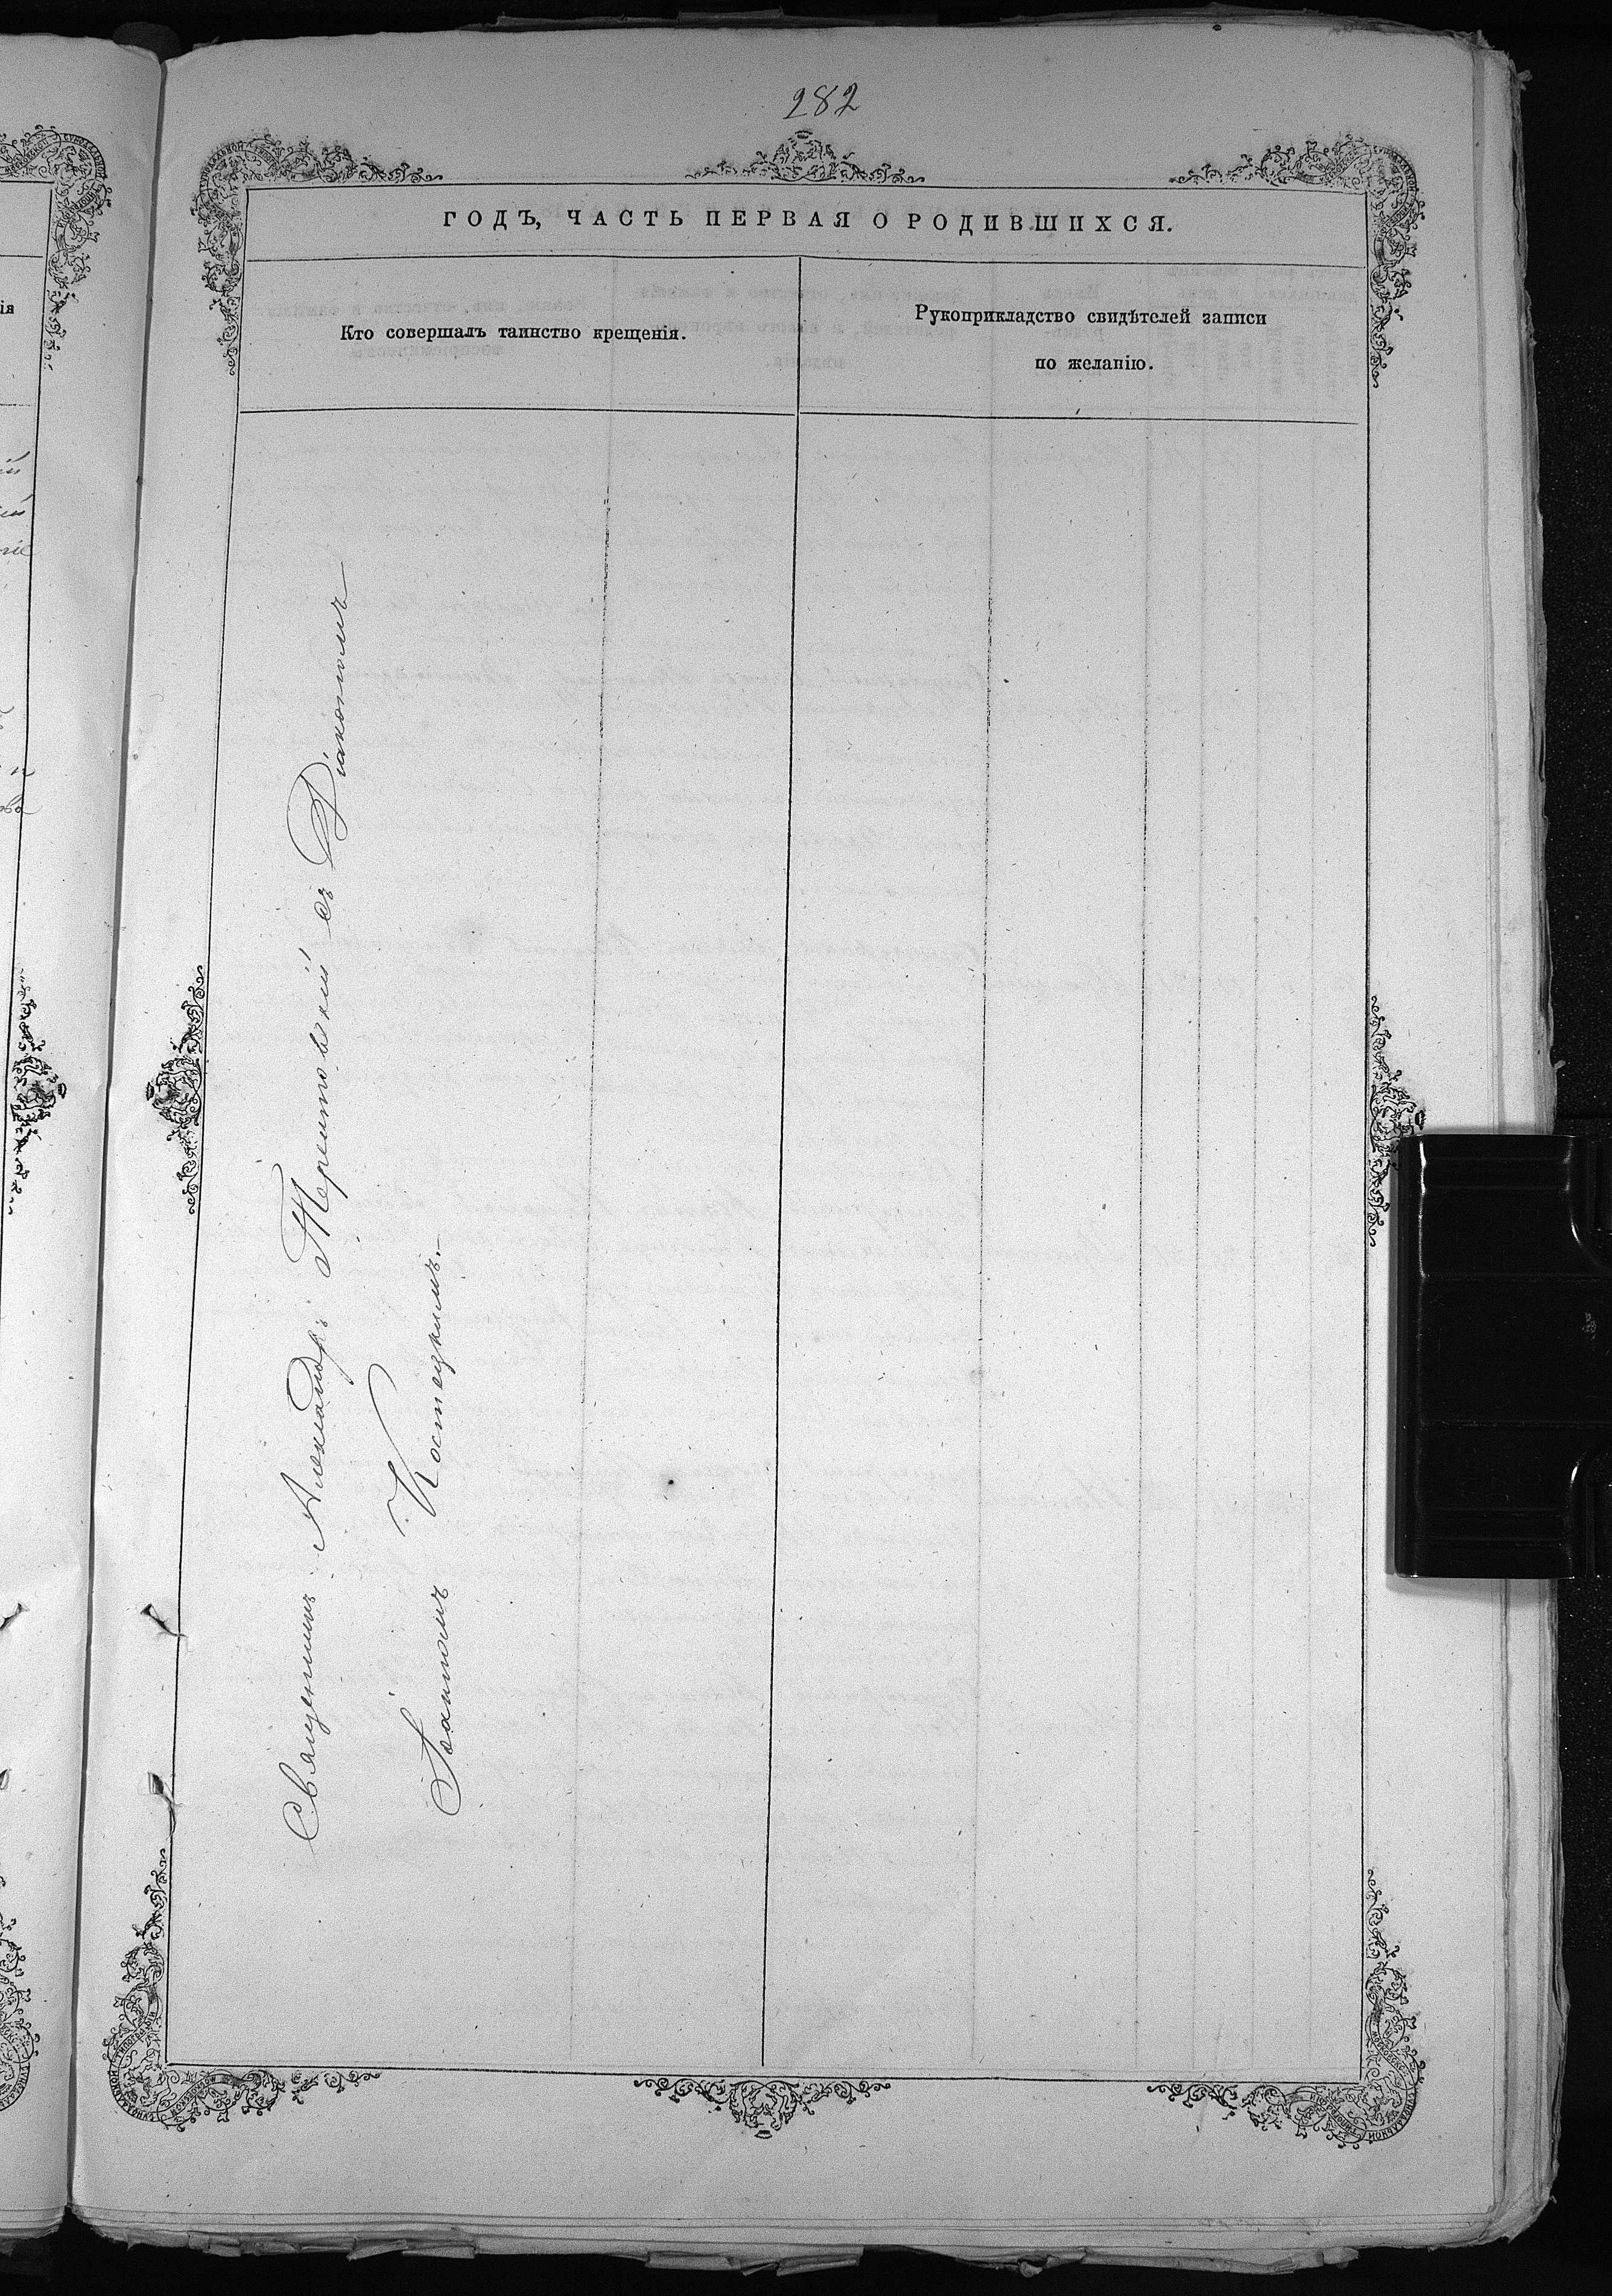 282
ГОДЪ, ЧАСТЬ ПЕРВАЯ О РОДИВШИХСЯ.
Кто совершалъ таинство крещенія.
Рукоприкладство свидѣтелей записи
по желанію.
Священникъ Александръ съ Діакономъ
Іоанномъ Костецкимъ.